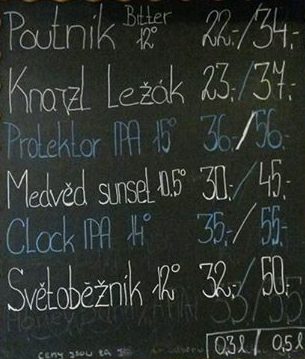 Poutník Bitter 12° 22,-/34,-
Knajzl Ležák 23,-/37,-
Prolektor IPA 15° 36,-/56,-
Medvěd sunset 10.5° 30,-/45,-
Clock IPA 14° 35,-/55,-
Světoběžník 12° 32,-/50,-
0,3l / 0,5l
ceny jsou za